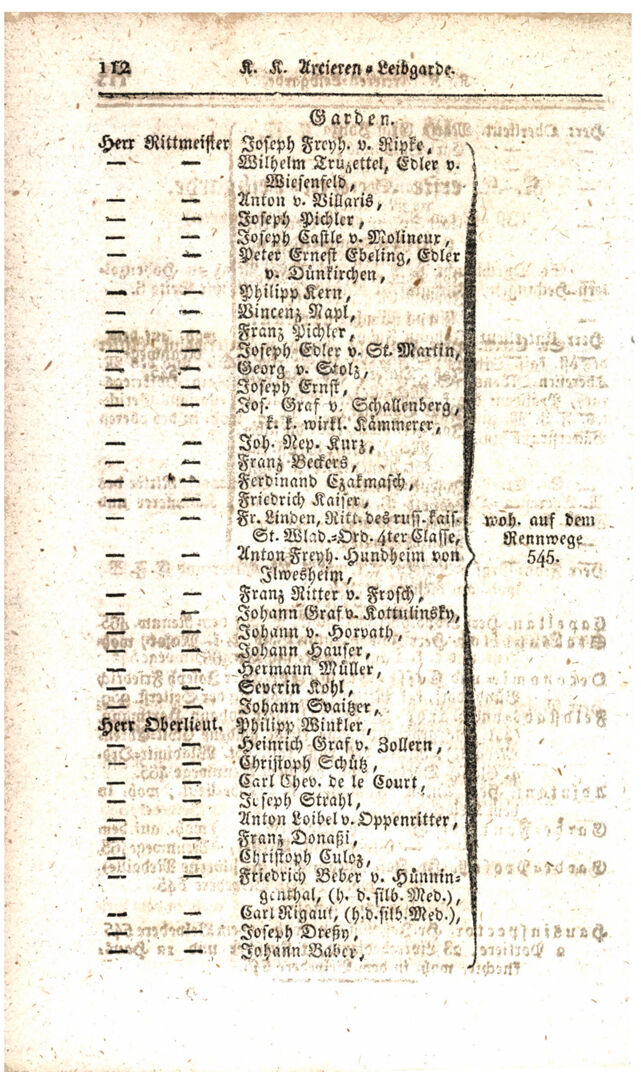 112 K. K. Arcieren-Leibgarde.
Garden.
Herr Rittmeister Joseph Freyh. v. Ripke,
— — Wilhelm Truzettel, Edler v.
Wiesenfeld,
— — Anton v. Villaris,
— — Joseph Pichler,
— — Joseph Castle v. Molineux,
— — Peter Ernest Ebeling, Edler
v. Dünkirchen,
— — Philipp Kern,
— — Vincenz Napl,
— — Franz Pichler,
— — Joseph Edler v. St. Martin,
— — Georg v. Stolz,
— — Joseph Ernst,
— — Jos. Graf v. Schallenberg,
k. k. wirkl. Kämmerer,
— — Joh. Nep. Kurz,
— — Franz Beckers,
— — Ferdinand Czakmasch,
— — Friedrich Kaiser,
— — Fr. Linden, Ritt. des russ. kais.
St. Wlad.-Ord. 4ter Classe,
— — Anton Freyh. Hundheim von
Ilwesheim,
— — Franz Ritter v. Frosch,
— — Johann Graf v. Kottulinsky,
— — Johann v. Horvath,
— — Johann Hauser,
— — Hermann Müller,
— — Severin Kohl,
— — Johann Svaitzer,
Herr Oberlieut. Philipp Winkler,
— — Heinrich Graf v. Zollern,
— — Christoph Schütz,
— — Carl Chev. de le Court,
— — Joseph Strahl,
— — Anton Loibel v. Oppenritter,
— — Franz Donaßi,
— — Christoph Culoz,
— — Friedrich Beber v. Hünnin-
genthal, (h. d. silb. Med.),
— — Carl Rigaut, (h. d. silb. Med.),
— — Joseph Dreßy,
— — Johann Baber,
woh. auf dem
Rennwege
545.